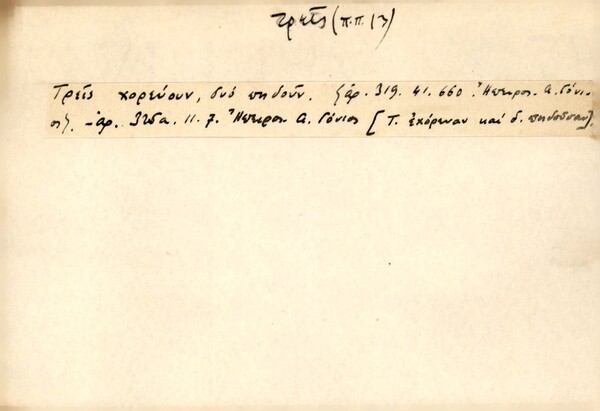 τρεῖς (π.π. 17)
Τρεῖς χορεύουν, δυό πηδοῦν. {ἀρ. 319. 41. 660. Ἤπειρος. Α. Γόνι-
ος}. - ἀρ. 326α. 11. 7. Ἤπειρος Α. Γόνιος [Τ. ἐχόρευαν καί δ. πηδοῦσαν].